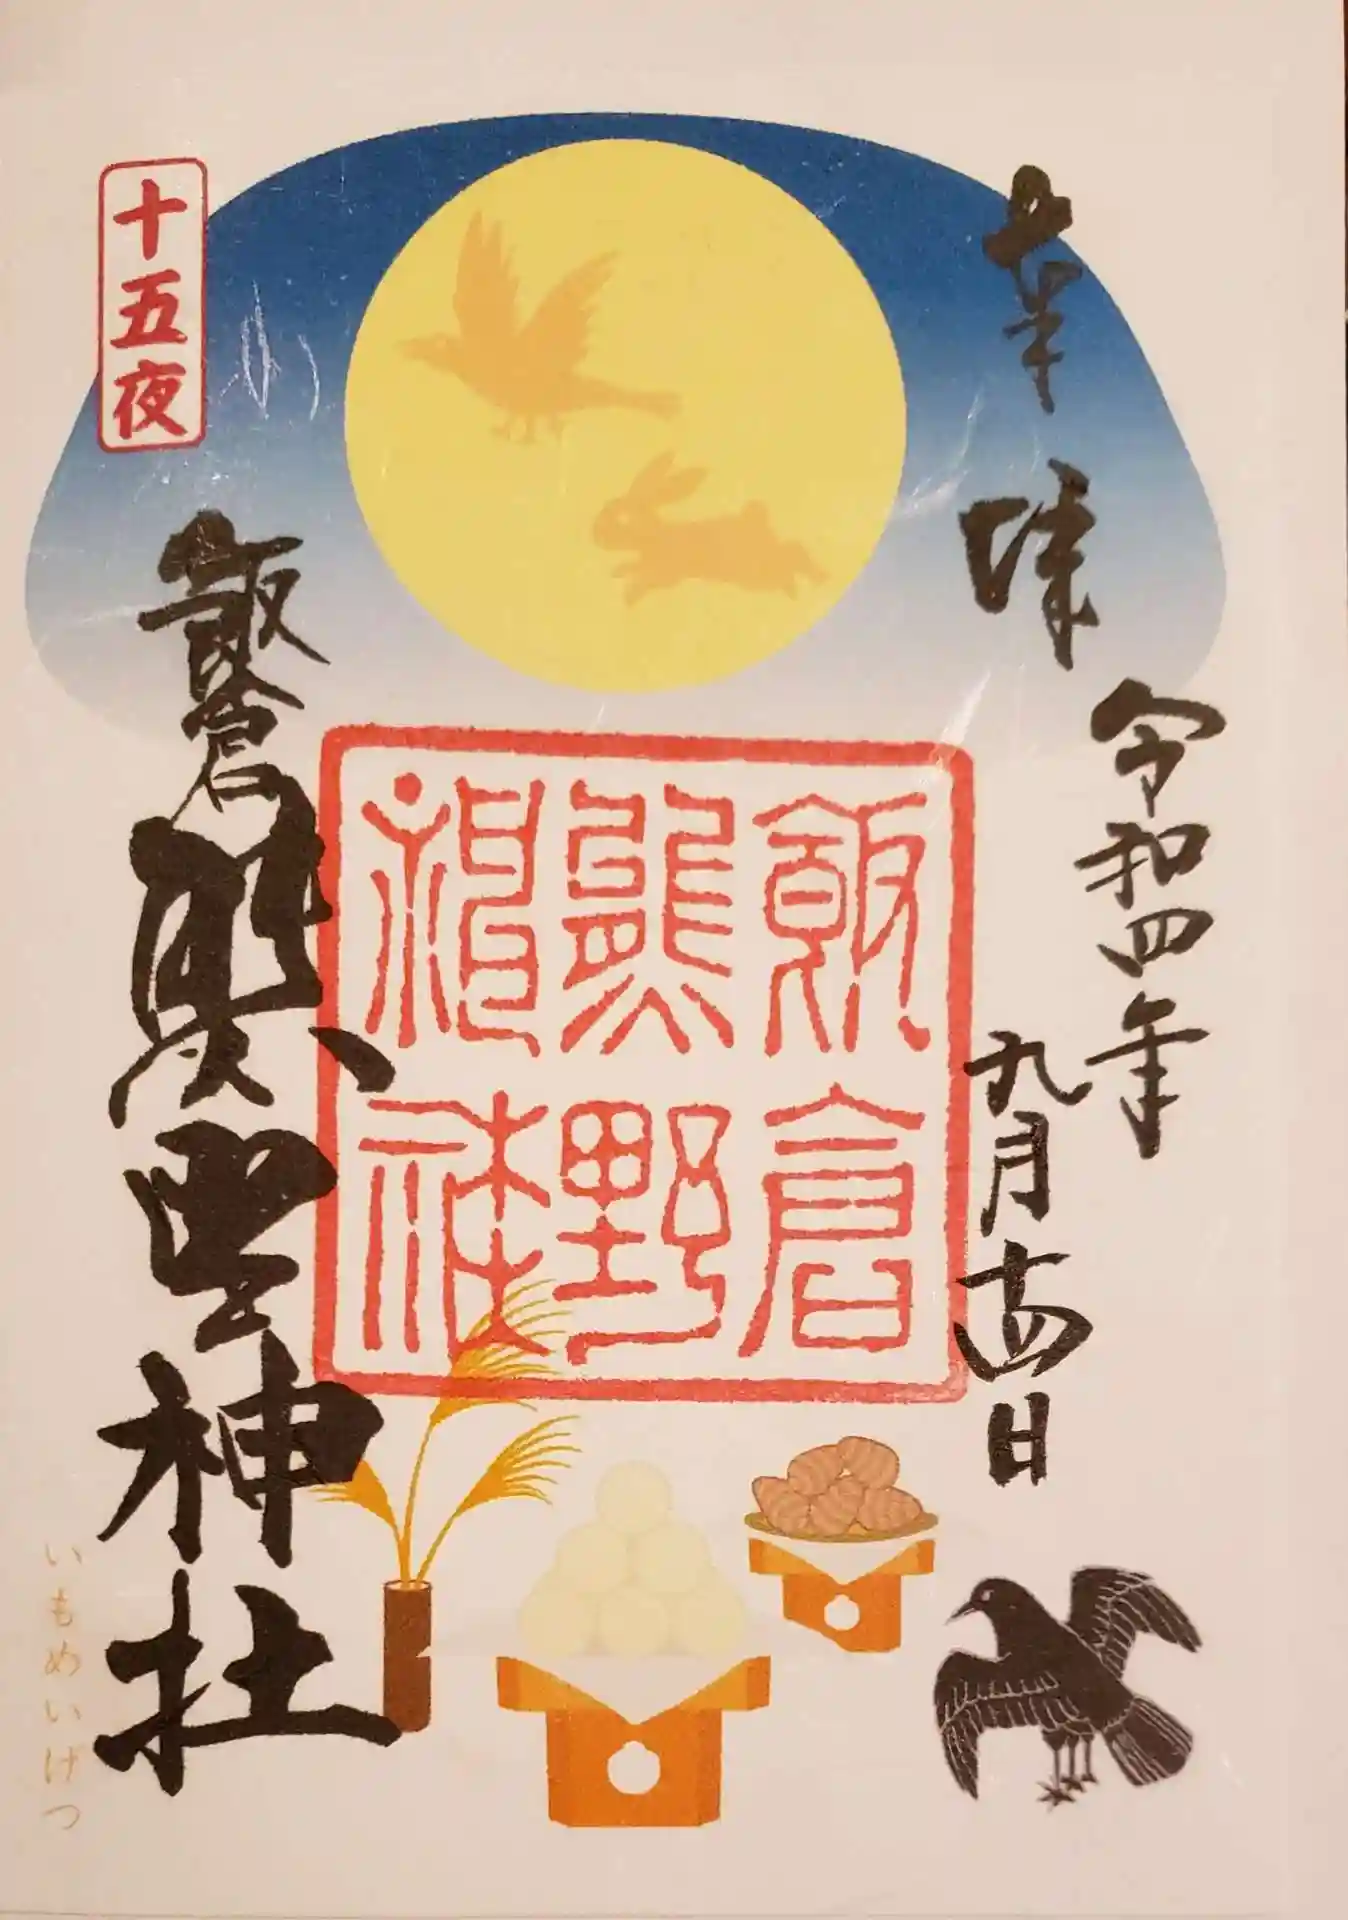 奉拝
令和四年
九月十四日
飯倉
熊野
神社
十五夜
飯倉熊野神社
いもめいげつ